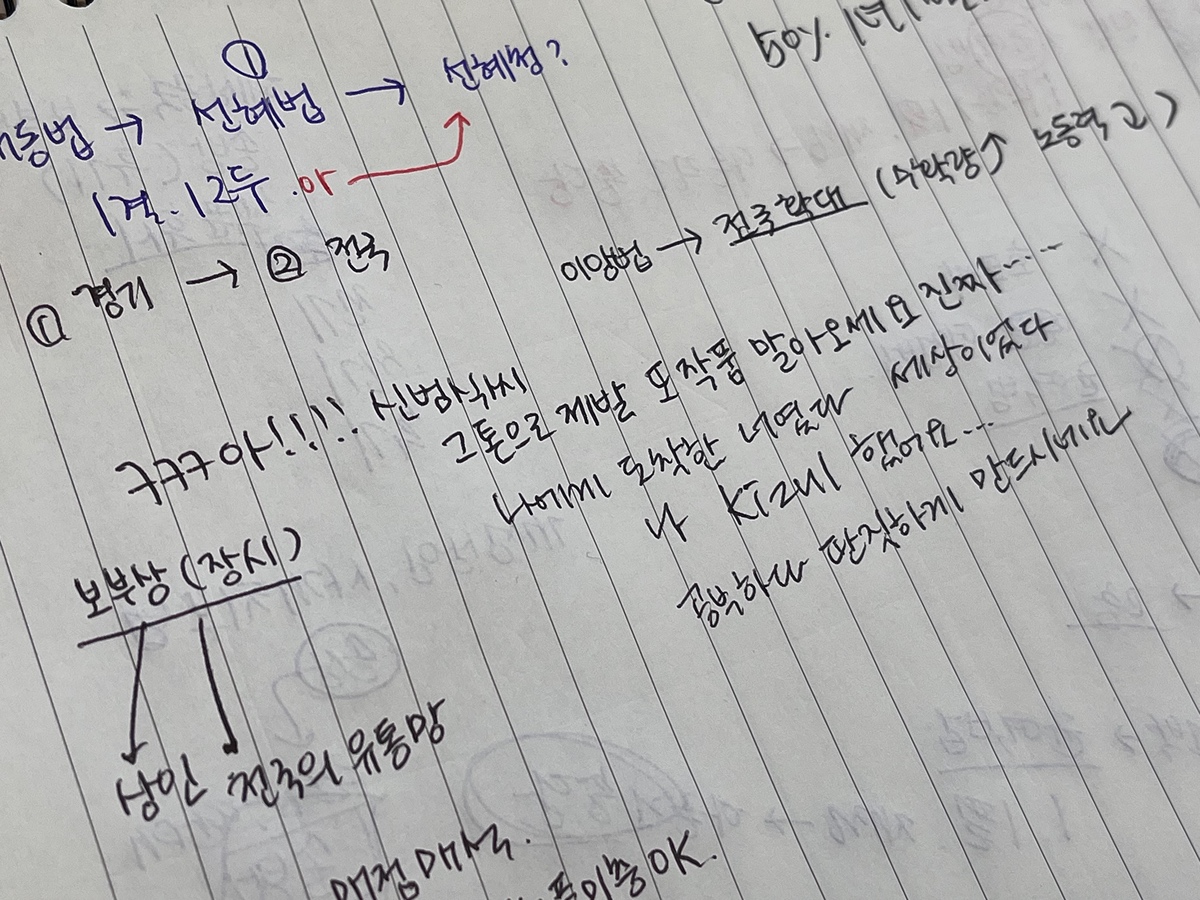 ①
대동법 → 선혜법 → 선혜청?
1결. 12두. 아
① 경기 → ② 전국
50%
이앙법 → 전국 확대 (수확량↑ 노동력 고)
쿠쿠쿠아!!!! 신범식씨
그톤으로 제발 또 작품 말아오세요 진짜.....
나에게 도착한 너였다 세상이었다
나 Kizul 했어요...
공부하나 딴짓하게 만드시네요
보부상 (장시)
상인 전국의 유통망
OK.